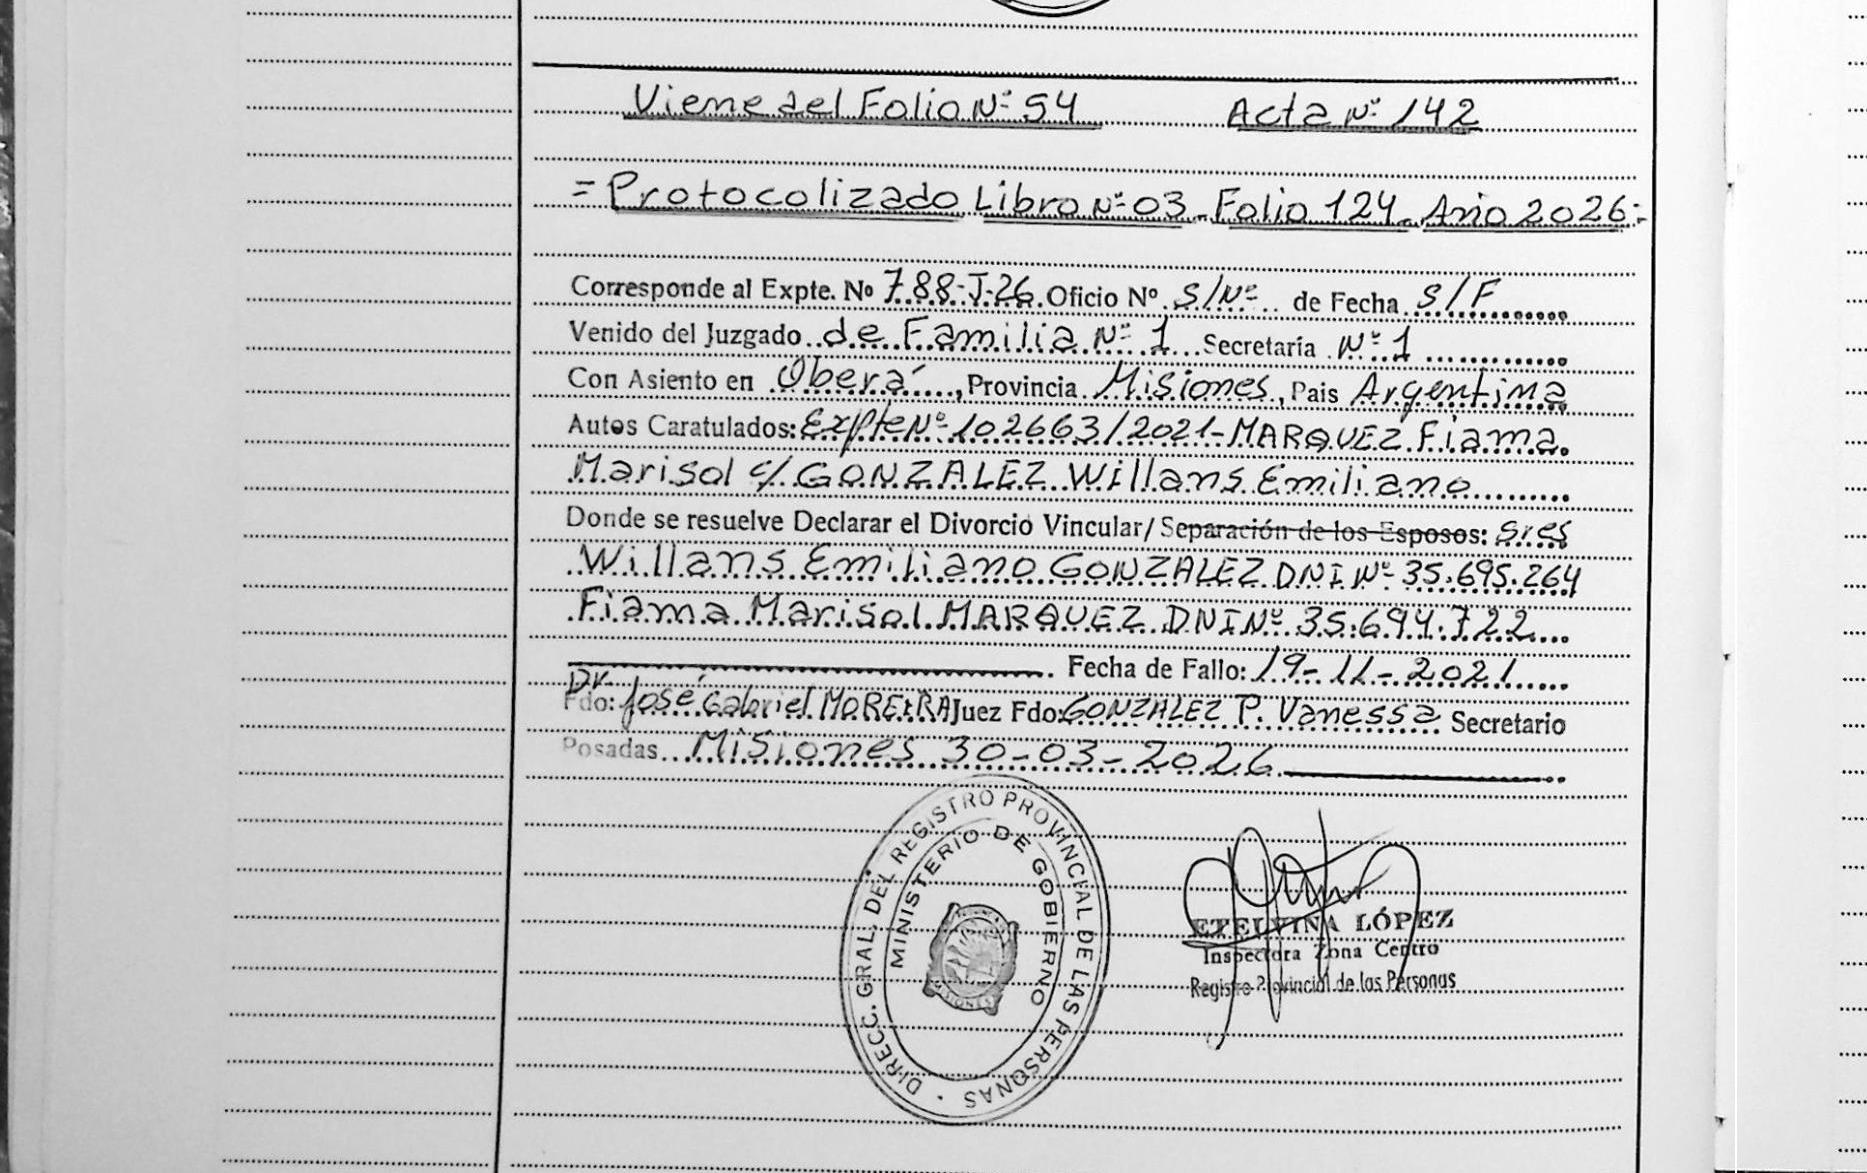 Viene del Folio Nº 54 Acta Nº 142
= Protocolizado Libro Nº 03 - Folio 124 - Año 2026 =
Corresponde al Expte. Nº 788-J-26. Oficio Nº S/Nº de Fecha S/F
Venido del Juzgado de Familia Nº 1 Secretaria Nº 1
Con Asiento en Oberá, Provincia Misiones, Pais Argentina
Autos Caratulados: Expte Nº 102663/2021 - MARQUEZ Fiama
Marisol c/ GONZALEZ Willans Emiliano
Donde se resuelve Declarar el Divorcio Vincular/ Separación de los Esposos: sres
Willans Emiliano GONZALEZ DNI Nº 35.695.264
Fiama Marisol MARQUEZ DNI Nº 35.694.722
Fecha de Fallo: 19-11-2021
Fdo: Dr. José Gabriel MOREIRA Juez Fdo: GONZALEZ P. Vanessa Secretario
Posadas Misiones 30-03-2026
DIRECC. GRAL. DEL REGISTRO PROVINCIAL DE LAS PERSONAS
MINISTERIO DE GOBIERNO
MISIONES
ETELVINA LÓPEZ
Inspectora Zona Centro
Registro Provincial de las Personas